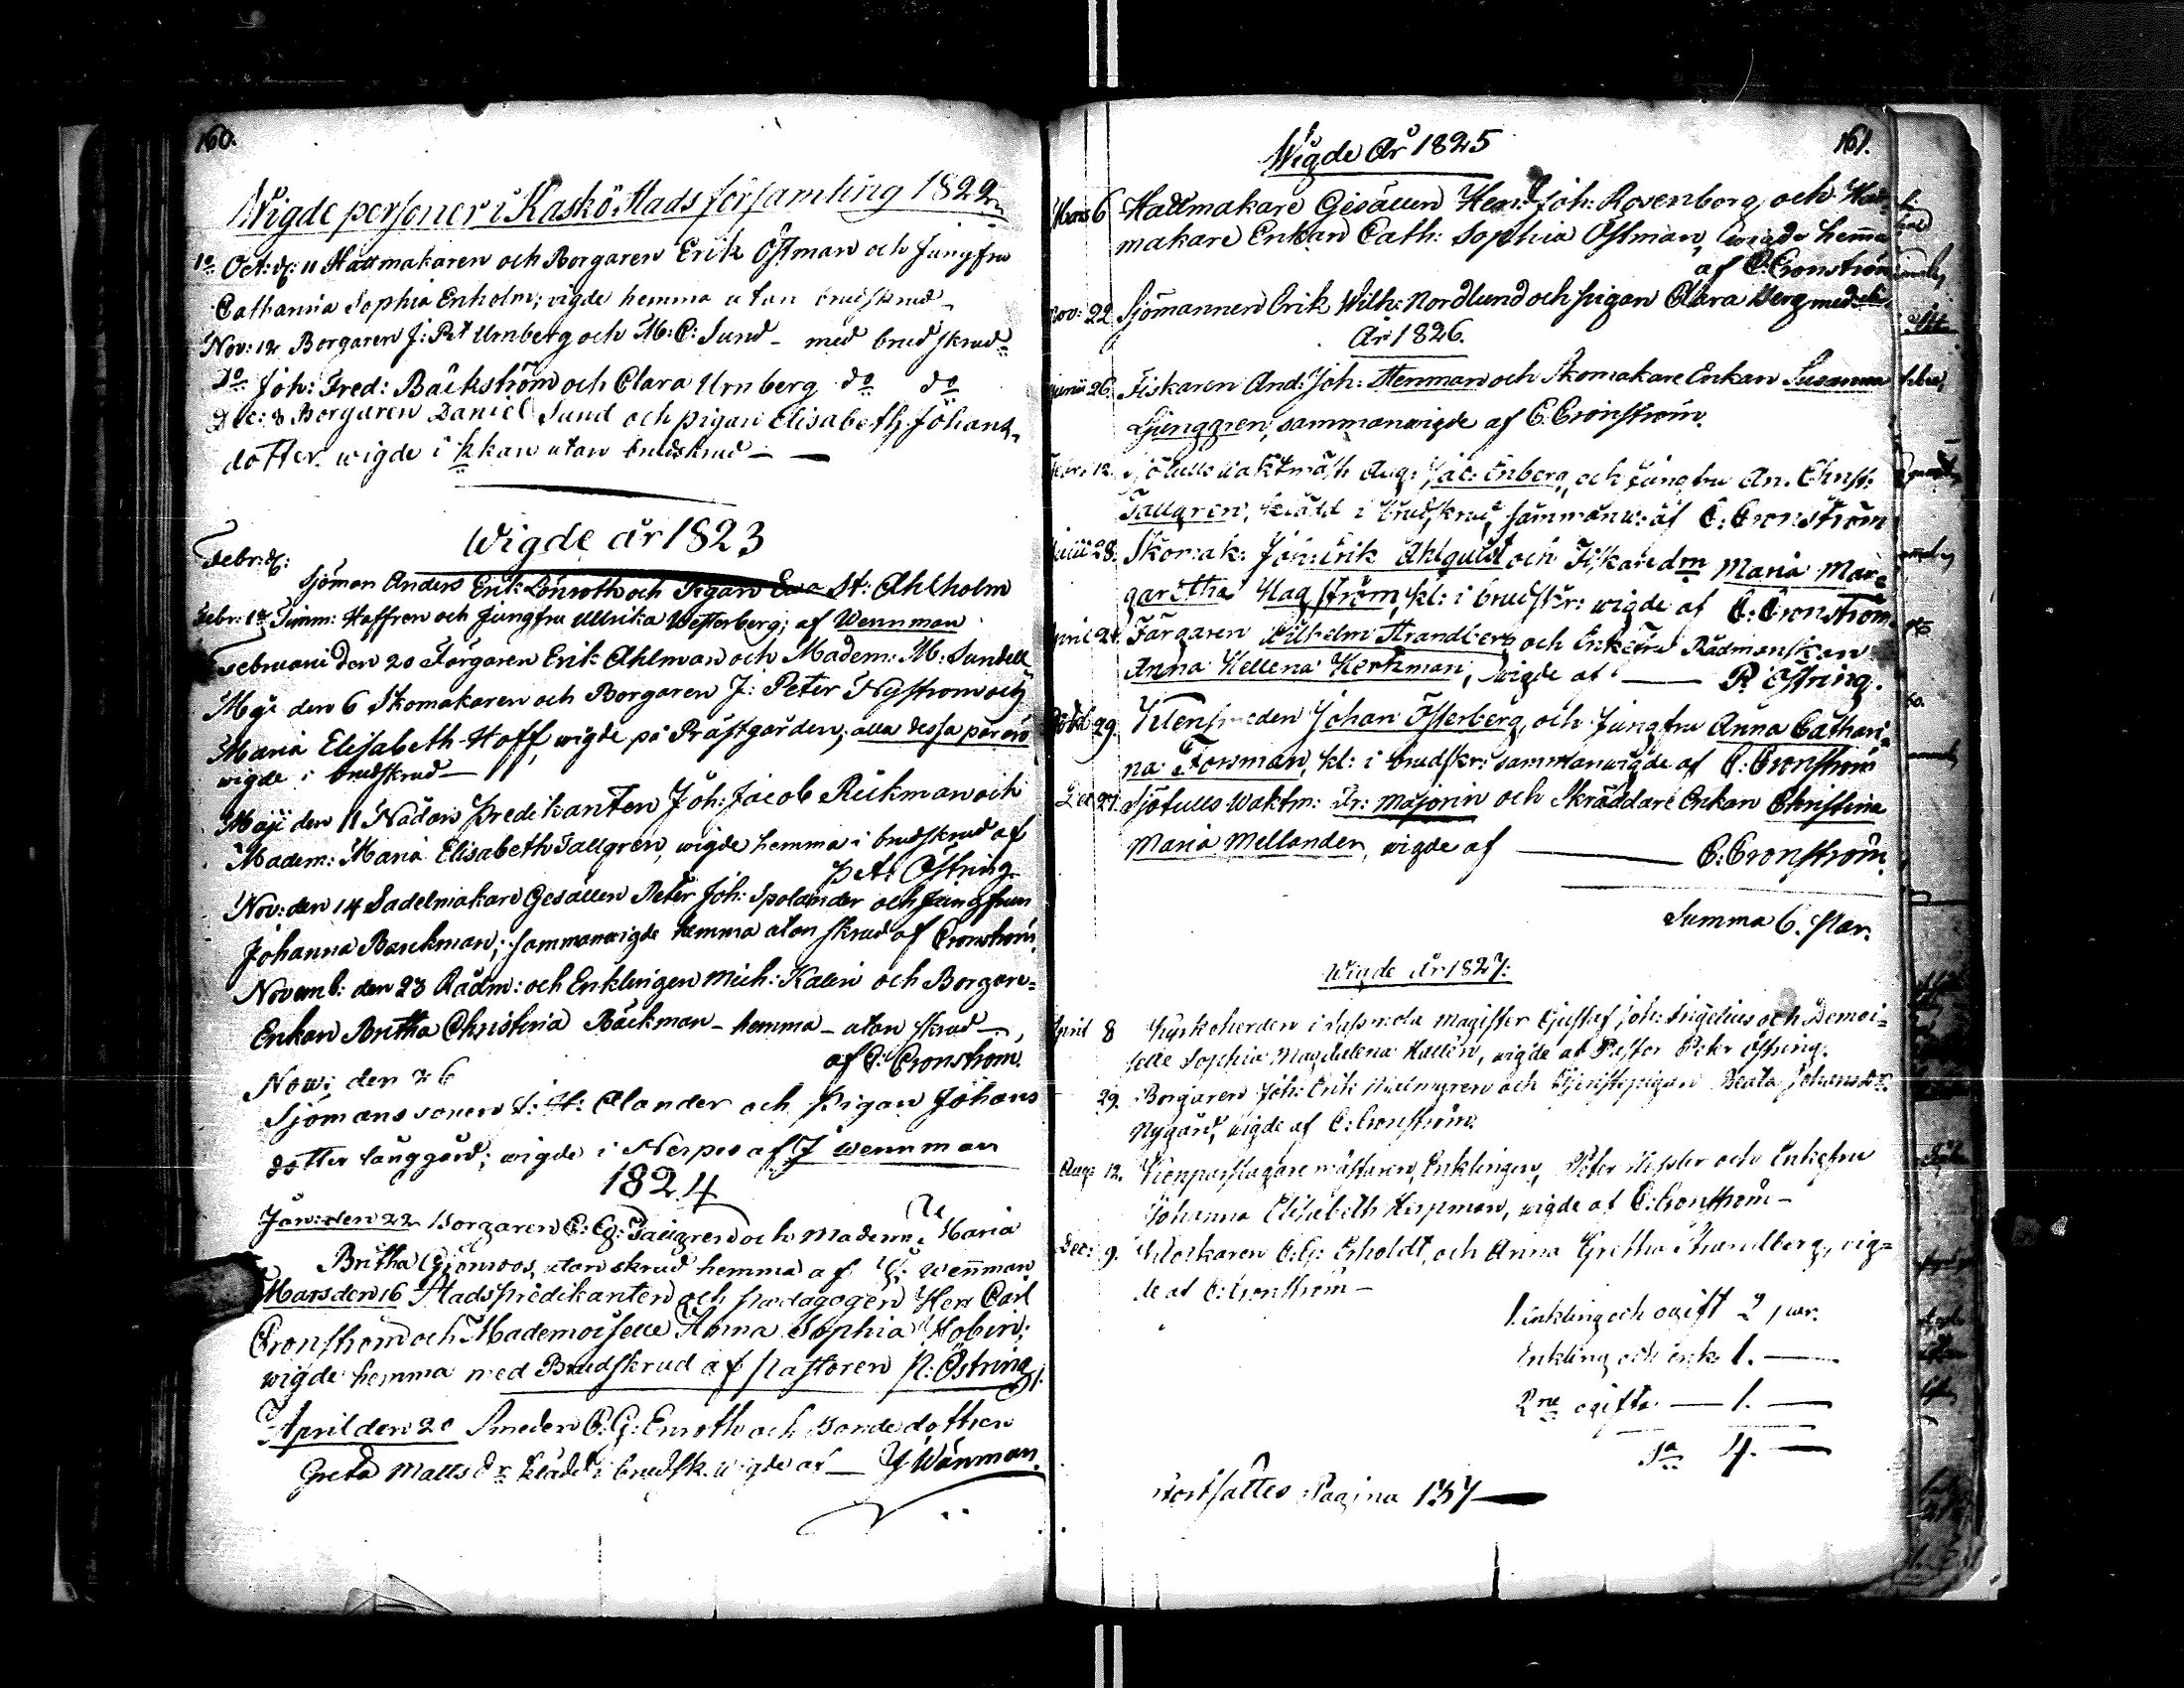 160.
Wigde personer i Kaskö Stads församling 1822
Oct: d: 11 Hattmakaren och Borgaren Erik Östman och Jungfru
Catharina Sophia Enholm; vigde hemma utan brudskrud
Nov: 12 Borgaren J: Pet Urnberg och M: C: Sund - med brudskrud
Do Joh: Fred: Bäckström och Clara Urnberg do do
Dec: 8 Borgaren Daniel Sund och pigan Elisabeth Johans
dotter. wigde i kkan utan brudskrud
Wigde år 1823
Febr: d:
Sjöman Anders Erik Lönroth och Pigan St: Ahlholm
Febr: 18 Timm: Hoffren och Jungfru Ullrika Westerberg; af Wennman
Februari den 20 Färgaren Erik Ahlman och Madem: M: Sundell
Maji den 6 Skomakaren och Borgaren J: Peter Nyström och
Maria Elisabeth Hoff, wigde på Prästgården; alla dessa par äro
wigde i brudskrud
Maji den 11 Nådårs Predikanten Joh: Jacob Rückman och
Madem: Maria Elisabeth Tallgren, wigde hemma i brudskrud af
P A: Östring
Nov: den 14 Sadelmakare Gesällen Peter Joh: Spolander och Jungfrun
Johanna Barckman; sammanvigde hemma utan skrud af Cronström.
Novemb: den 23 Rådm: och Enklingen Mich: Kalin och Borgare=
Enkan Britha Christina Bäckman - hemma - utan skrud
af C: Cronström.
Nov: den 26
Sjömans sonen J: H: Alander och Pigan Johans
dotter Långgård; wigde i Nerpes af J Wennman
1824
Jan: den 22 Borgaren C: G: Tallgren och Madem: Maria
Britha Grönroos, utan skrud hemma af J: Wennman
Mars den 16 Stadspredikanten och Pædagogen Herr Carl
Cronström och Mademoiselle Anna Sophia Hobin;
wigde hemma med Brudskrud af Pastoren P: Östring.
April den 20 Smeden C: G: Enroth och Bondedottren
Greta Matts dr klädd i brudsk. wigde af J Wänman.
161.
Wigde År 1825
Mars 6 Hattmakare Gesällen Henr Joh: Rosenborg och Hatt
makare Enkan Cath: Sophia Östman, wigde hemma
af C: Cronström
Nov: 22 Sjömannen Erik Wilh: Nordlund och pigan Clara Berg med
År 1826.
26. Fiskaren And: Joh: Stenman och Skomakare Enkan Susanna
Ljunggren, sammanwigde af C. Cronström.
12. Sjötulls Waktmäst Aug: Jac: Enberg, och Jungfru An. Christ:
Tallgren, klädd i brudskrud, sammanw: af C: Cronström
Junii 28. Skomak: Joh: Erik Ahlquist och Fiskare dr Maria Mar
garetha Hagström, kl: i brudskr: wigde af C: Cronström
April Färgaren Wilhelm Strandberg och Enkefru Rådmanskan
Anna Hellena Hertzman, wigde af P. Östring.
29. Klensmeden Johan Österberg, och Jungfru Anna Cathari
na Forsman, kl: i brudskr: sammanwigde af C: Cronström
Dec 27. Sjötulls Waktm: Fr: Majorin och Skräddare Enkan Christina
Maria Mellander, wigde af C: Cronström.
Summa 6. Par.
Wigde År 1827:
April 8 Kyrkoherden i Magister Gustaf Joh: Ingelius och Demoi=
selle Sophia Magdalena Hallén, wigde af Pastor Peter Östring.
29. Borgaren Joh: Erik Malmgren och Tjenstepigan Beata Johansdr
Nygård, wigde af C: Cronström.
Aug: 12. Enklingen, Peter Hessler och Enkefru
Johanna Elisabeth Herpman, wigde af C: Cronström -
Dec: 9. Klockaren C: G: Erholdt, och Anna Gretha Strandberg, vig=
de af C: Cronström -
1. Enkling och ogift 2 par.
Enkling och enk: 1. —
2ne ogifta — 1. —
Sa 4. —
Fortsattes Pagina 137